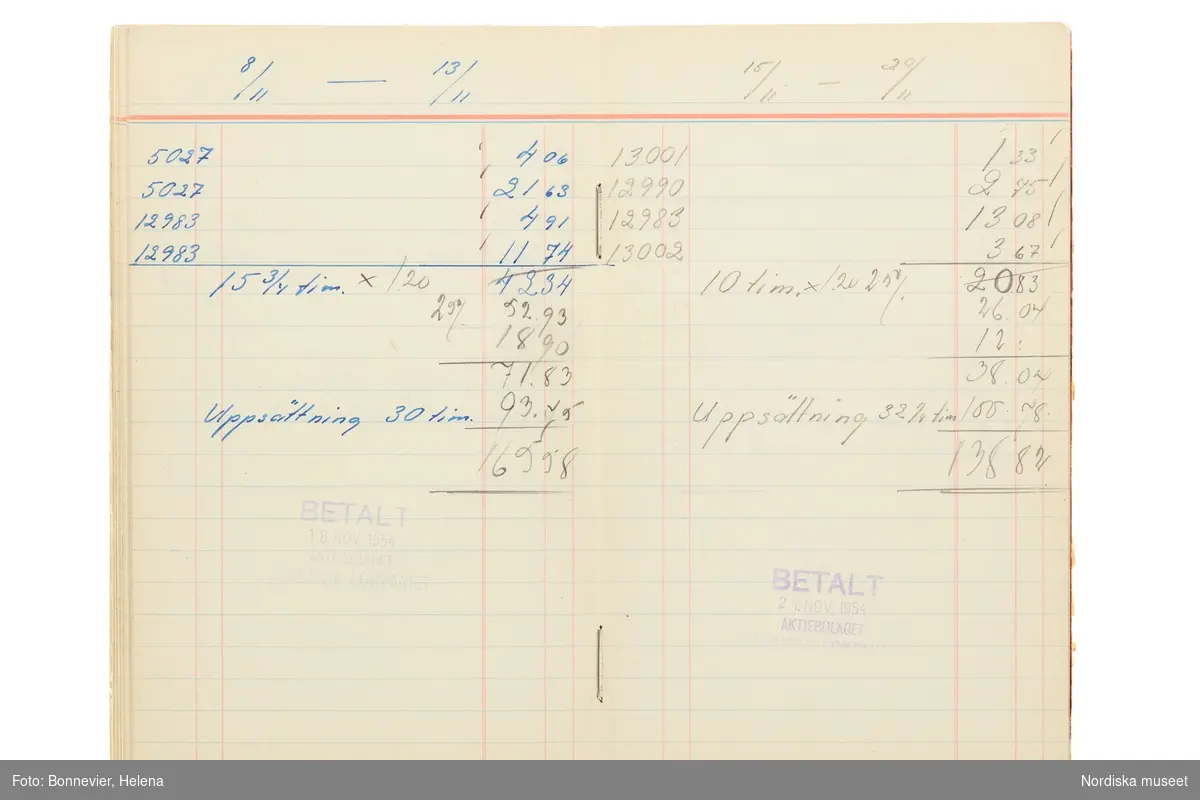 8/11 — 13/11
5027 4 06
5027 21 63
12983 4 91
12983 11 74
15 3/4 tim. x 1.20 42 34
25% 52.93
18 90
71.83
Uppsättning 30 tim. 93.75
165 58
BETALT
18. NOV. 1954
AKTIEBOLAGET
15/11 — 20/11
13001 1 33
12990 2 75
12983 13 08
13002 3 67
10 tim. x 1.20 25% 20 83
26.04
12 :
38.04
Uppsättning 32 1/4 tim 100.78
138 82
BETALT
NOV. 1954
AKTIEBOLAGET
Foto: Bonnevier, Helena
Nordiska museet